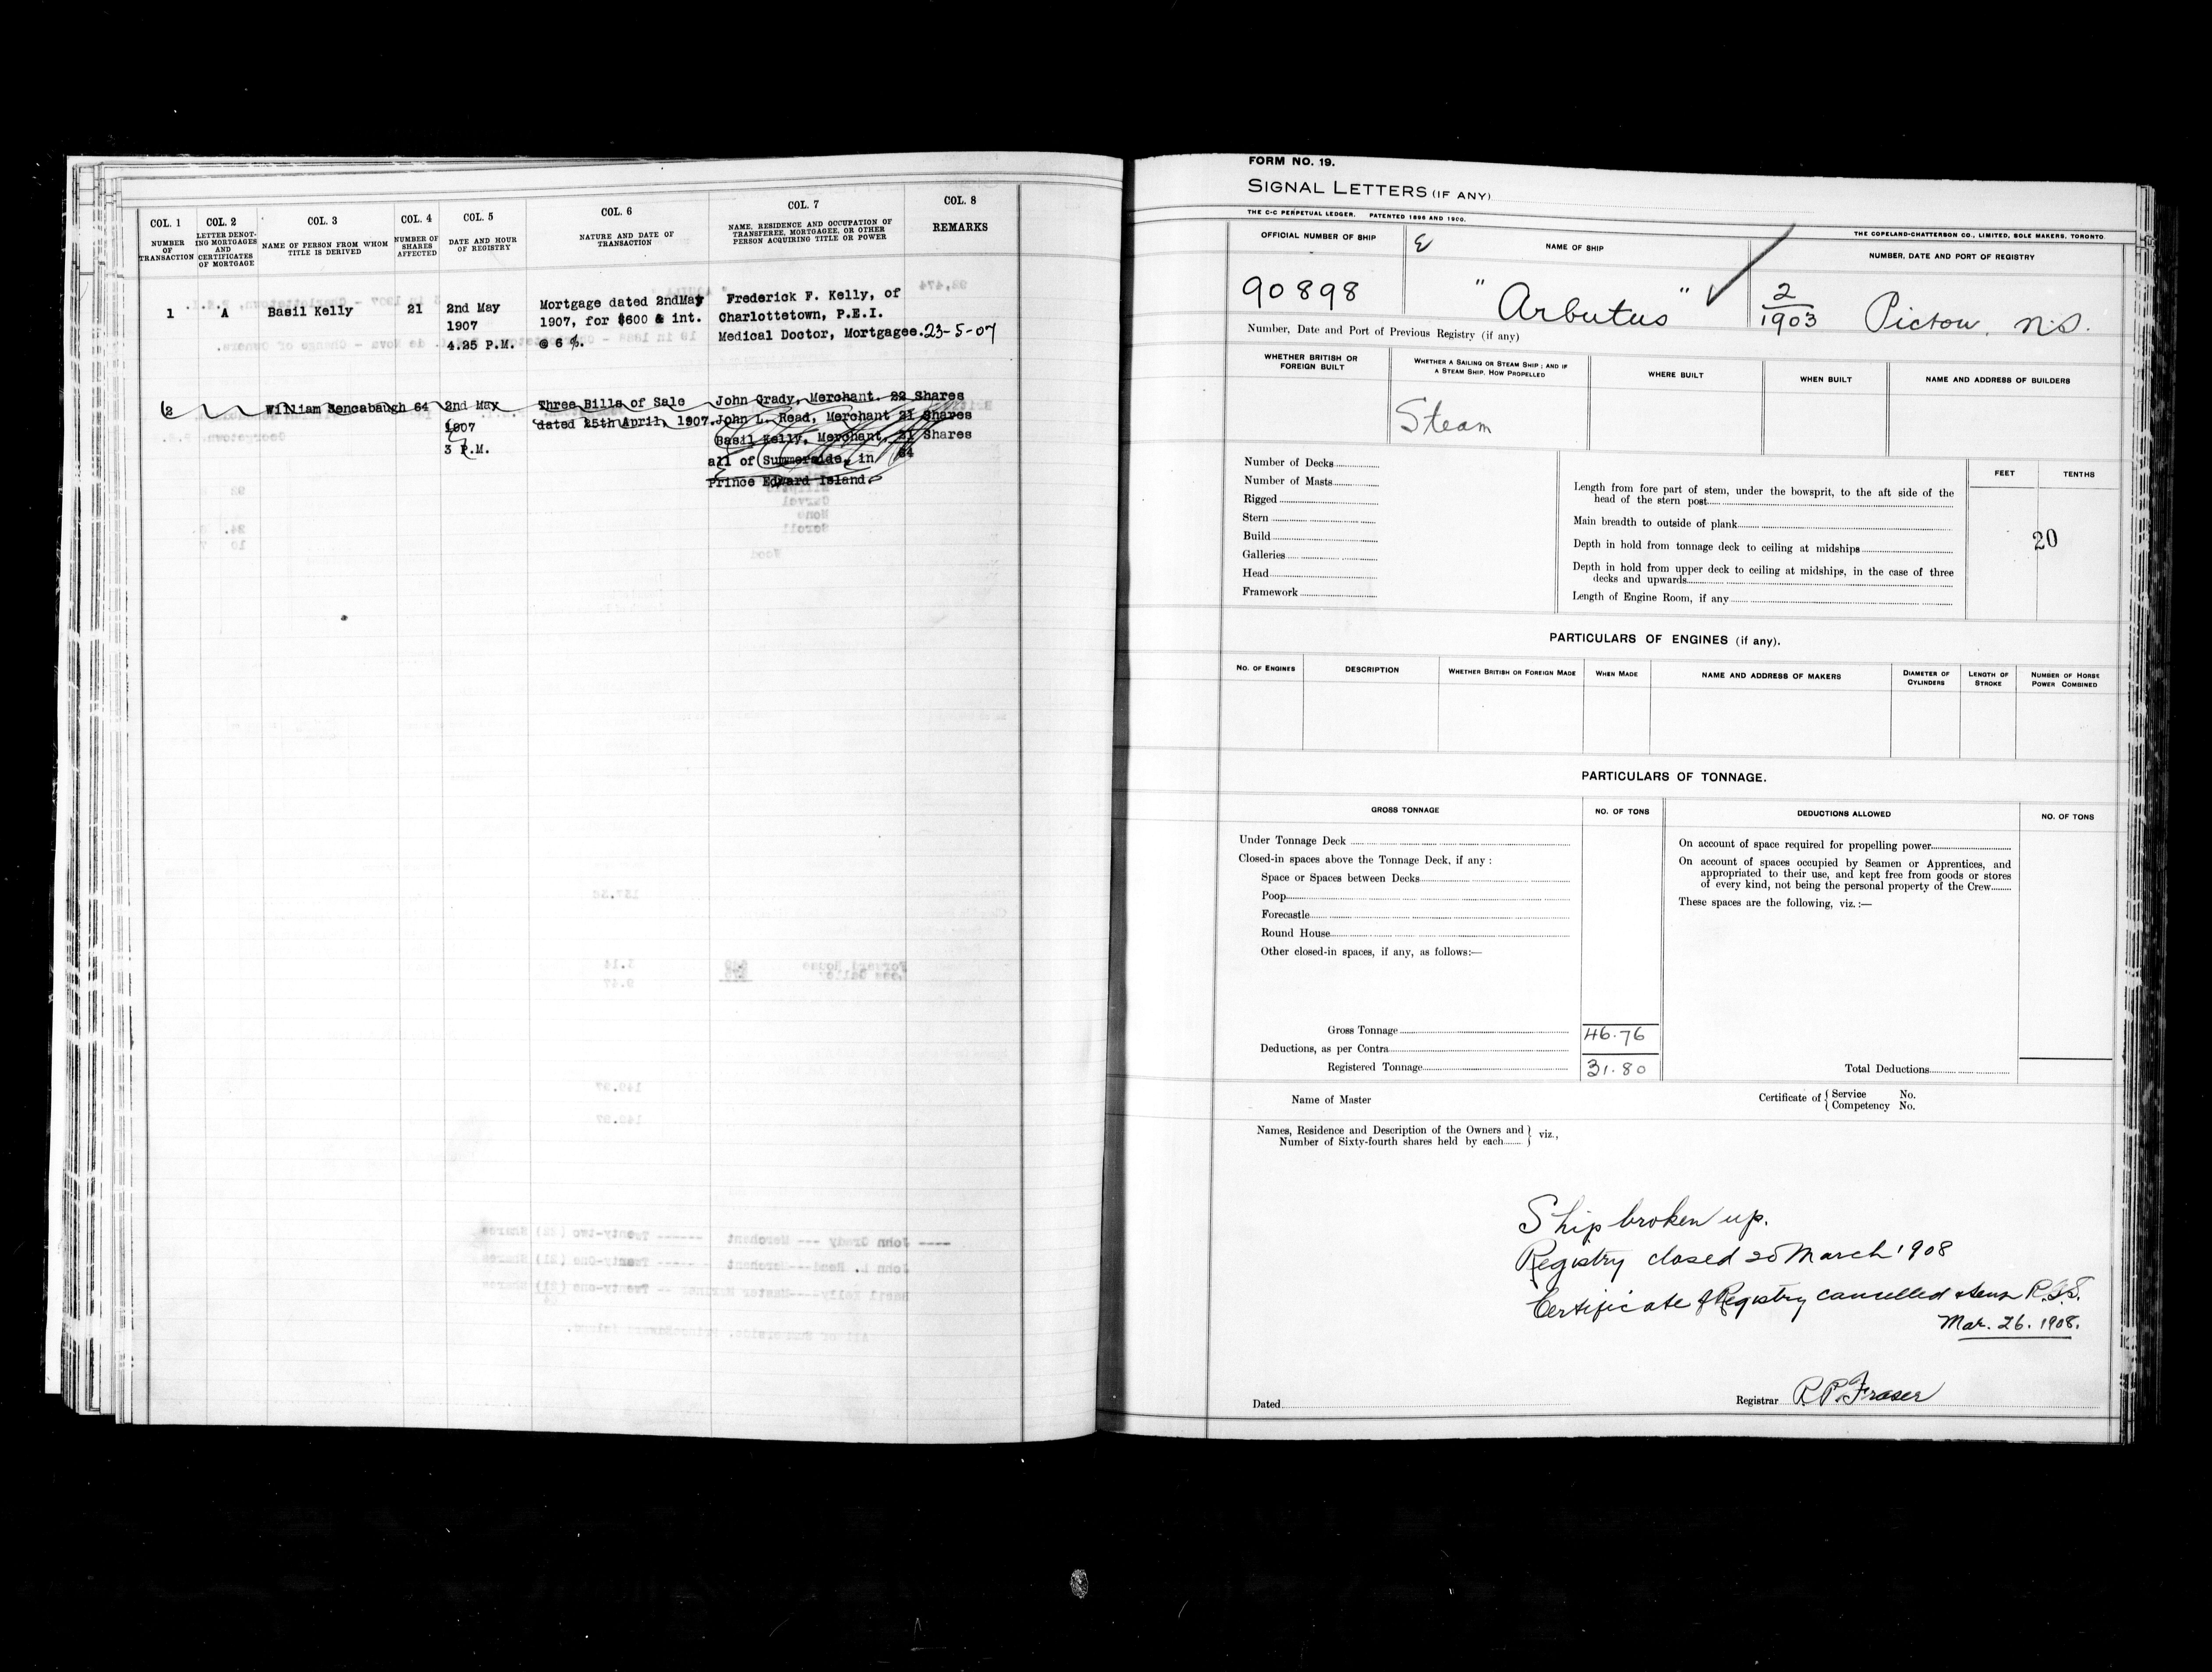 COL. 1 COL. 2 COL. 3 COL. 4 COL. 5 COL. 6 COL. 7 COL. 8
NUMBER OF TRANSACTION
LETTER DENOTING MORTGAGES AND CERTIFICATES OF MORTGAGE
NAME OF PERSON FROM WHOM TITLE IS DERIVED
NUMBER OF SHARES AFFECTED
DATE AND HOUR OF REGISTRY
NATURE AND DATE OF TRANSACTION
NAME, RESIDENCE AND OCCUPATION OF TRANSFEREE, MORTGAGEE, OR OTHER PERSON ACQUIRING TITLE OR POWER
REMARKS
1 A Basil Kelly 21 2nd May Mortgage dated 2ndMay Frederick F. Kelly, of
1907 1907, for $600 & int. Charlottetown, P.E.I.
4.25 P.M. @ 6 %. Medical Doctor, Mortgagee. 23-5-07
2 William Sencabaugh 64 2nd May Three Bills of Sale John Grady, Merchant. 22 Shares
1907 dated 25th April, 1907. John L. Read, Merchant 21 Shares
3 P.M. Basil Kelly, Merchant, 21 Shares
all of Summerside, in 64
Prince Edward Island.
FORM NO. 19.
SIGNAL LETTERS (IF ANY)
THE C-C PERPETUAL LEDGER. PATENTED 1896 AND 1900.
THE COPELAND-CHATTERSON CO., LIMITED, SOLE MAKERS, TORONTO.
OFFICIAL NUMBER OF SHIP NAME OF SHIP NUMBER, DATE AND PORT OF REGISTRY
90898 "Arbutus" 2/1903 Pictou, N.S.
Number, Date and Port of Previous Registry (if any)
WHETHER BRITISH OR FOREIGN BUILT
WHETHER A SAILING OR STEAM SHIP; AND IF A STEAM SHIP, HOW PROPELLED
WHERE BUILT
WHEN BUILT
NAME AND ADDRESS OF BUILDERS
Steam
Number of Decks
Number of Masts
Rigged
Stern
Build
Galleries
Head
Framework
FEET TENTHS
Length from fore part of stem, under the bowsprit, to the aft side of the
head of the stern post
Main breadth to outside of plank
Depth in hold from tonnage deck to ceiling at midships
Depth in hold from upper deck to ceiling at midships, in the case of three
decks and upwards
Length of Engine Room, if any
20
PARTICULARS OF ENGINES (if any).
NO. OF ENGINES
DESCRIPTION
WHETHER BRITISH OR FOREIGN MADE
WHEN MADE
NAME AND ADDRESS OF MAKERS
DIAMETER OF CYLINDERS
LENGTH OF STROKE
NUMBER OF HORSE POWER COMBINED
PARTICULARS OF TONNAGE.
GROSS TONNAGE NO. OF TONS DEDUCTIONS ALLOWED NO. OF TONS
Under Tonnage Deck
Closed-in spaces above the Tonnage Deck, if any :
Space or Spaces between Decks
Poop
Forecastle
Round House
Other closed-in spaces, if any, as follows:—
Gross Tonnage 46.76
Deductions, as per Contra
Registered Tonnage 31.80
On account of space required for propelling power
On account of spaces occupied by Seamen or Apprentices, and
appropriated to their use, and kept free from goods or stores
of every kind, not being the personal property of the Crew
These spaces are the following, viz. :—
Total Deductions
Name of Master
Certificate of { Service No.
{ Competency No.
Names, Residence and Description of the Owners and
Number of Sixty-fourth shares held by each } viz.,
Ship broken up.
Registry closed 20 March 1908
Certificate of Registry cancelled
Mar. 26. 1908.
Dated
Registrar R.P. Fraser